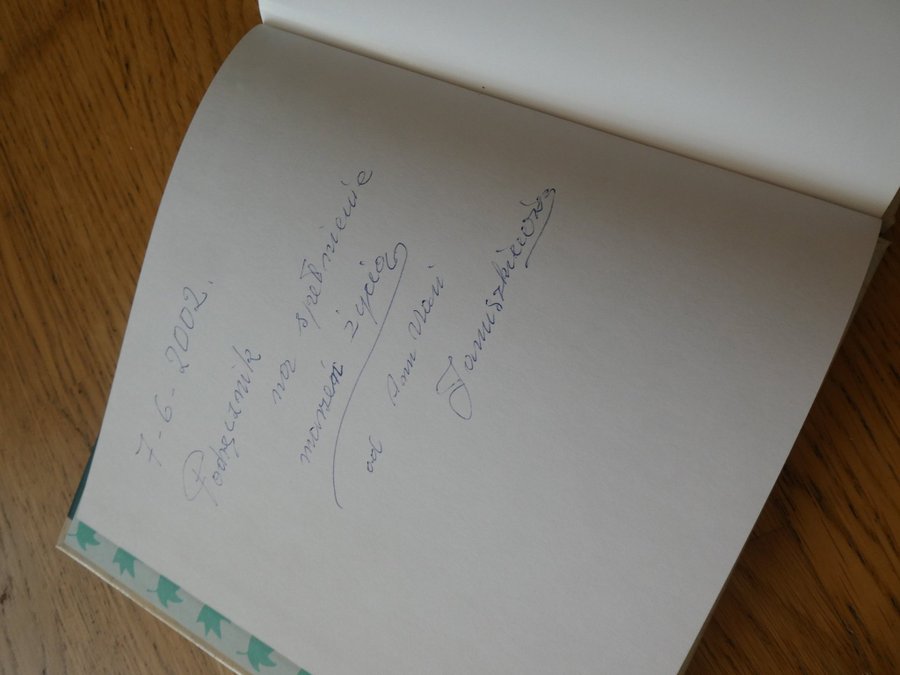 7-6-2002.
Podręcznik
na spełnienie
marzeń życia
od
Januszkiewicz